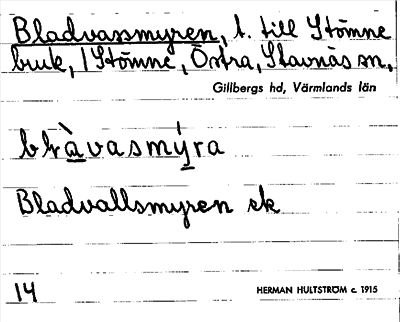 Bladvassmyren, t. till Stömne
bruk, 1 Stömne, Östra, Stavnäs sn,
Gillbergs hd, Värmlands län
blràvasmýra
Bladvallsmyren ek
14
HERMAN HULTSTRÖM c. 1915